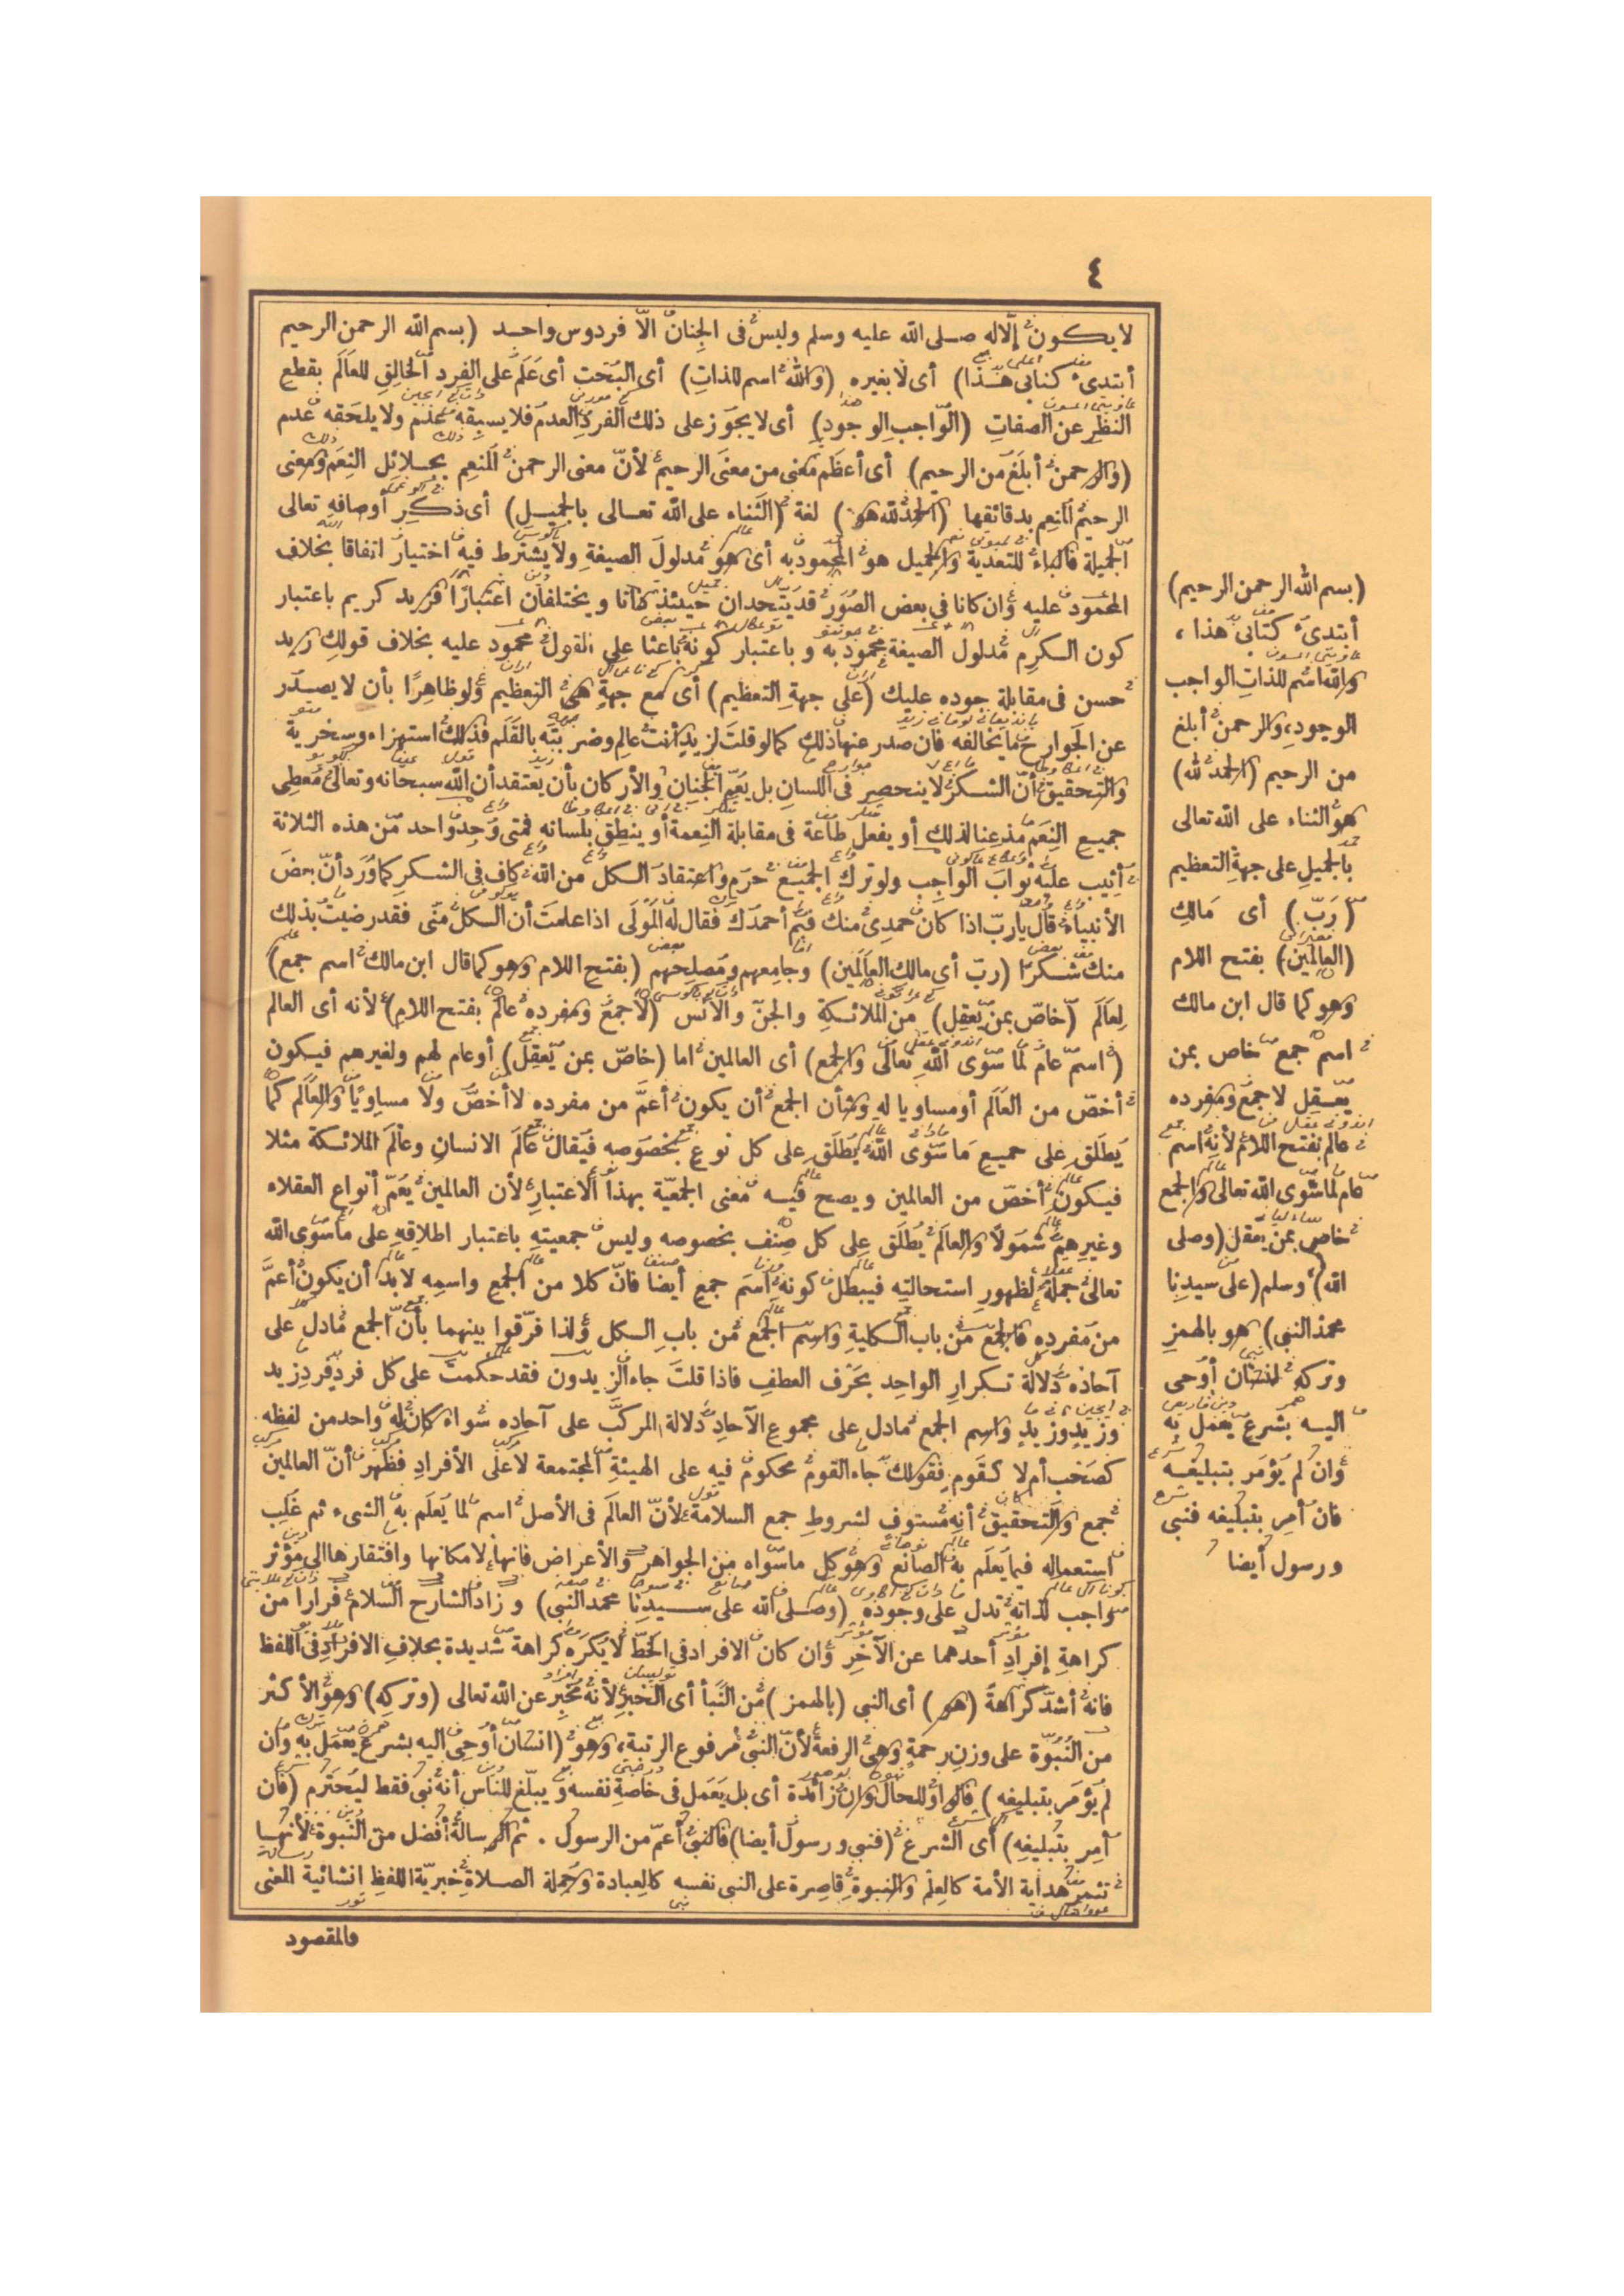 ٤
لا يكون إلا له صلى الله عليه وسلم وليس فى الجنان الّا فردوس واحد (بسم الله الرحمن الرحيم
أبتدئ كتابى هذا) أى لا بغيره (والله اسم للذات) أى البحت أى علم على الفرد الخالق للعالم بقطع
النظر عن الصفات (الواجب الوجود) أى لا يجوز على ذلك الفرد العدم فلا يسبقه عدم ولا يلحقه عدم
(والرحمن أبلغ من الرحيم) أى أعظم معنى من معنى الرحيم لأنّ معنى الرحمن المنعم بجلائل النعم ومعنى
الرحيم المنعم بدقائقها (الحمد لله هو) لغة (الثناء على الله تعالى بالجميل) أى ذكر أوصافه تعالى
الجميلة فالباء للتعدية والجميل هو المحمود به أى هو مدلول الصيغة ولا يشترط فيه اختيار اتفاقا بخلاف
المحمود عليه وان كانا فى بعض الصور قد يتحدان حينئذ ذاتا ويختلفان اعتبارًا فزيد كريم باعتبار
كون الكرم مدلول الصيغة محمود به وباعتبار كونه باعثا على القول محمود عليه بخلاف قولك زيد
حسن فى مقابلة جوده عليك (على جهة التعظيم) أى مع جهة هى التعظيم ولو ظاهرًا بأن لا يصدر
عن الجوارح ما يخالفه فان صدر عنها ذلك كما لو قلت لزيد أنت عالم وضربته بالقلم فذلك استهزاء وسخرية
والتحقيق أنّ الشكر لا ينحصر فى اللسان بل يعمّ الجنان والأركان بأن يعتقد أن الله سبحانه وتعالى معطى
جميع النعم مذعنا لذلك أو يفعل طاعة فى مقابلة النعمة أو ينطق بلسانه فمتى وجد واحد من هذه الثلاثة
أثيب عليه ثواب الواجب ولو ترك الجميع حرم واعتقاد الكل من الله كاف فى الشكر كما ورد أنّ بعض
الأنبياء قال يا ربّ اذا كان حمدى منك فبم أحمدك فقال له المولى اذا علمت أن الكل منّى فقد رضيت بذلك
منك شكرًا (ربّ أى مالك العالمين) وجامعهم ومصلحهم (بفتح اللام وهو كما قال ابن مالك اسم جمع)
لعالم (خاصّ بمن يعقل) من الملائكة والجنّ والانس (لا جمع ومفرده عالم بفتح اللام) لأنه أى العالم
(اسم عام لما سوى الله تعالى والجمع) أى العالمين اما (خاصّ بمن يعقل) أو عام لهم ولغيرهم فيكون
أخصّ من العالم أو مساويا له وشأن الجمع أن يكون أعمّ من مفرده لا أخصّ ولا مساويًا والعالم كما
يطلق على جميع ما سوى الله يطلق على كل نوع بخصوصه فيقال عالم الانسان وعالم الملائكة مثلا
فيكون أخصّ من العالمين ويصح فيه معنى الجمعيّة بهذا الاعتبار لأن العالمين يعمّ أنواع العقلاء
وغيرهم شمولاً والعالم يطلق على كل صنف بخصوصه وليس جمعيته باعتبار اطلاقه على ما سوى الله
تعالى جملة لظهور استحالته فيبطل كونه اسم جمع أيضا فانّ كلا من الجمع واسمه لا بد أن يكون أعمّ
من مفرده فالجمع من باب الكلية واسم الجمع من باب الكل ولذا فرّقوا بينهما بأنّ الجمع مادل على
آحاده دلالة تكرار الواحد بحرف العطف فاذا قلت جاء الزيدون فقد حكمت على كل فرد فرد زيد
وزيد وزيد واسم الجمع مادل على مجموع الآحاد دلالة المركّب على آحاده سواء كان له واحد من لفظه
كصحب أم لا كقوم فقولك جاء القوم محكوم فيه على الهيئة المجتمعة لا على الأفراد فظهر أنّ العالمين
جمع والتحقيق أنه مستوف لشروط جمع السلامة لأنّ العالم فى الأصل اسم لما يعلم به الشىء ثم غلب
استعماله فيما يعلم به الصانع وهو كل ما سواه من الجواهر والأعراض فانها لامكانها وافتقارها الى مؤثر
واجب لذاته تدل على وجوده (وصلى الله على سيدنا محمد النبى) وزاد الشارح السلام فرارا من
كراهة إفراد أحدهما عن الآخر وان كان الافراد فى الخطّ لا يكره كراهة شديدة بخلاف الافراد فى اللفظ
فانه أشدّ كراهةً (هو) أى النبى (بالهمز) من النّبأ أى الخبر لأنه مخبر عن الله تعالى (وتركه) وهو الأكثر
من النّبوّة على وزن رحمة وهى الرفعة لأنّ النبىّ مرفوع الرتبة، وهو (انسان أوحى اليه بشرع يعمل به وان
لم يؤمر بتبليغه) فالواو للحال وان زائدة أى بل يعمل فى خاصة نفسه ويبلّغ للناس أنه نبىّ فقط ليحترم (فان
أمر بتبليغه) أى الشرع (فنبى ورسول أيضا) فالنبىّ أعمّ من الرسول . ثم الرسالة أفضل من النّبوة لأنها
تثمر هداية الأمة كالعلم والنبوة قاصرة على النبى نفسه كالعبادة وجملة الصلاة خبريّة اللفظ انشائية المعنى
والمقصود
(بسم الله الرحمن الرحيم)
أبتدئ كتابى هذا ،
والله اسم للذات الواجب
الوجود، والرحمن أبلغ
من الرحيم (الحمد لله)
هو الثناء على الله تعالى
بالجميل على جهة التعظيم
(ربّ) أى مالك
(العالمين) بفتح اللام
وهو كما قال ابن مالك
اسم جمع خاص بمن
يعقل لا جمع ومفرده
عالم بفتح اللام لأنه اسم
عام لما سوى الله تعالى والجمع
خاص بمن يعقل (وصلى
الله) وسلم (على سيدنا
محمد النبى) هو بالهمز
وتركه انسان أوحى
اليه بشرع يعمل به
وان لم يؤمر بتبليغه
فان أمر بتبليغه فنبى
ورسول أيضا